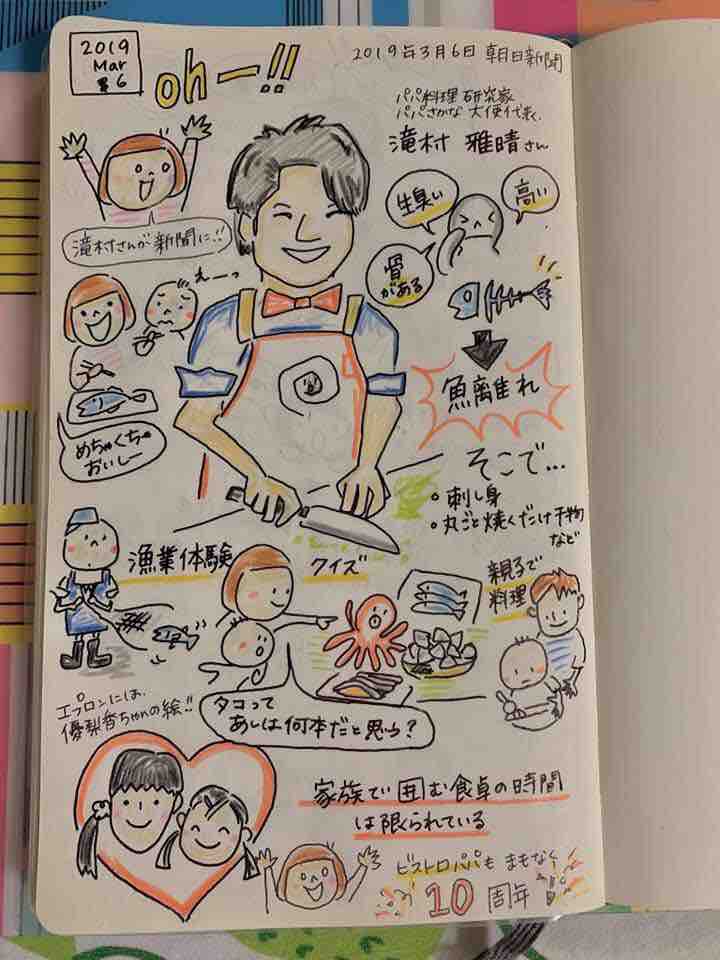 2019
Mar
6
ohー!!
2019年3月6日 朝日新聞
パパ料理研究家
パパさかな大使代表
滝村 雅晴さん
滝村さんが新聞に!!
生臭い
高い
骨
がある
えーっ
めちゃくちゃ
おいしー
魚離れ
そこで...
・刺し身
・丸ごと焼くだけ干物
など
漁業体験
クイズ
親子で
料理
タコって
あしは何本だと思う?
エプロンには、
優梨香ちゃんの絵!!
家族で囲む食卓の時間
は限られている
ビストロパパもまもなく
10周年